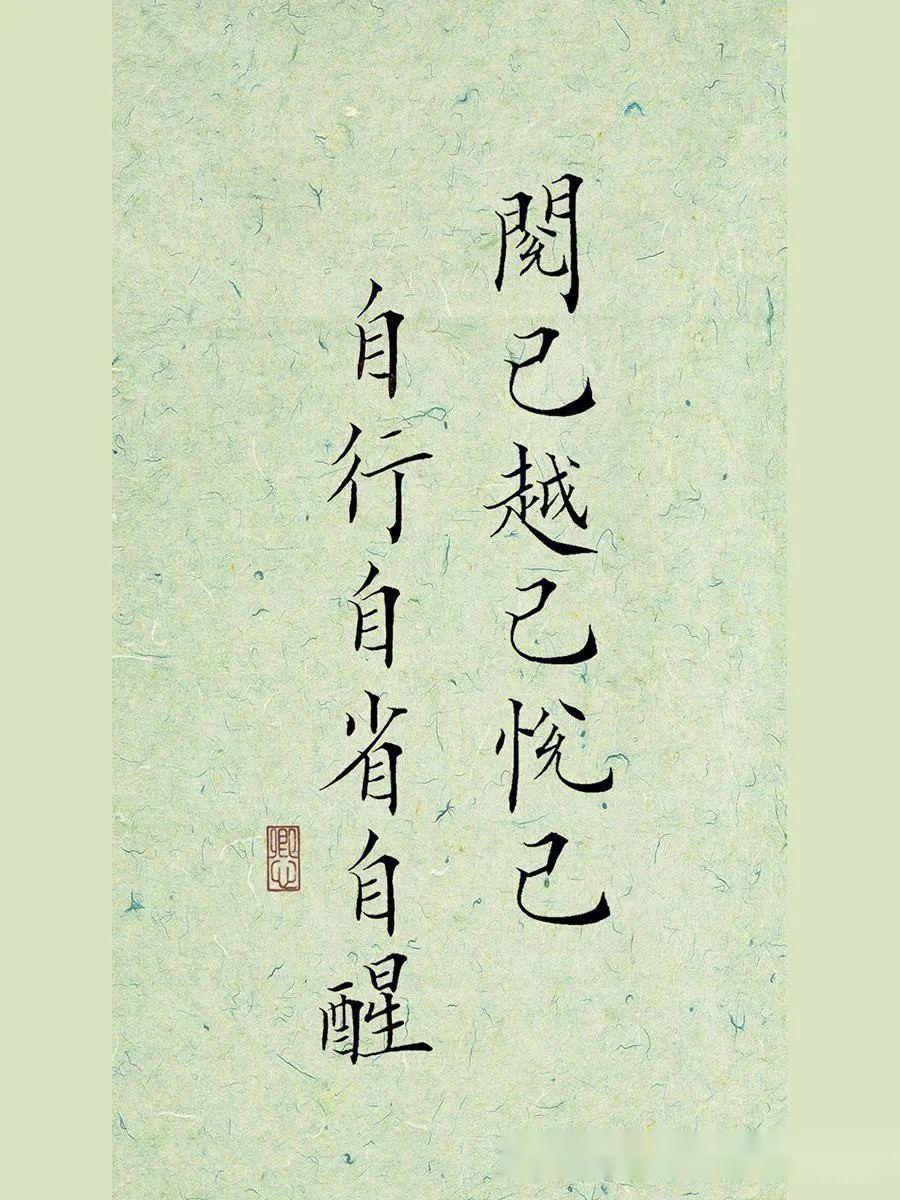 閱己越己悅己
自行自省自醒
卿心